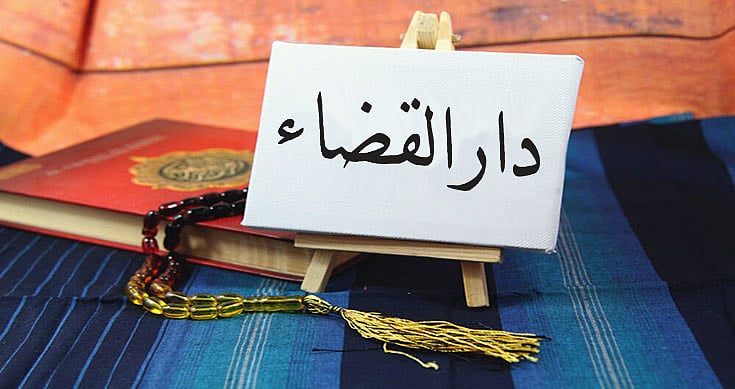 دار القضاء